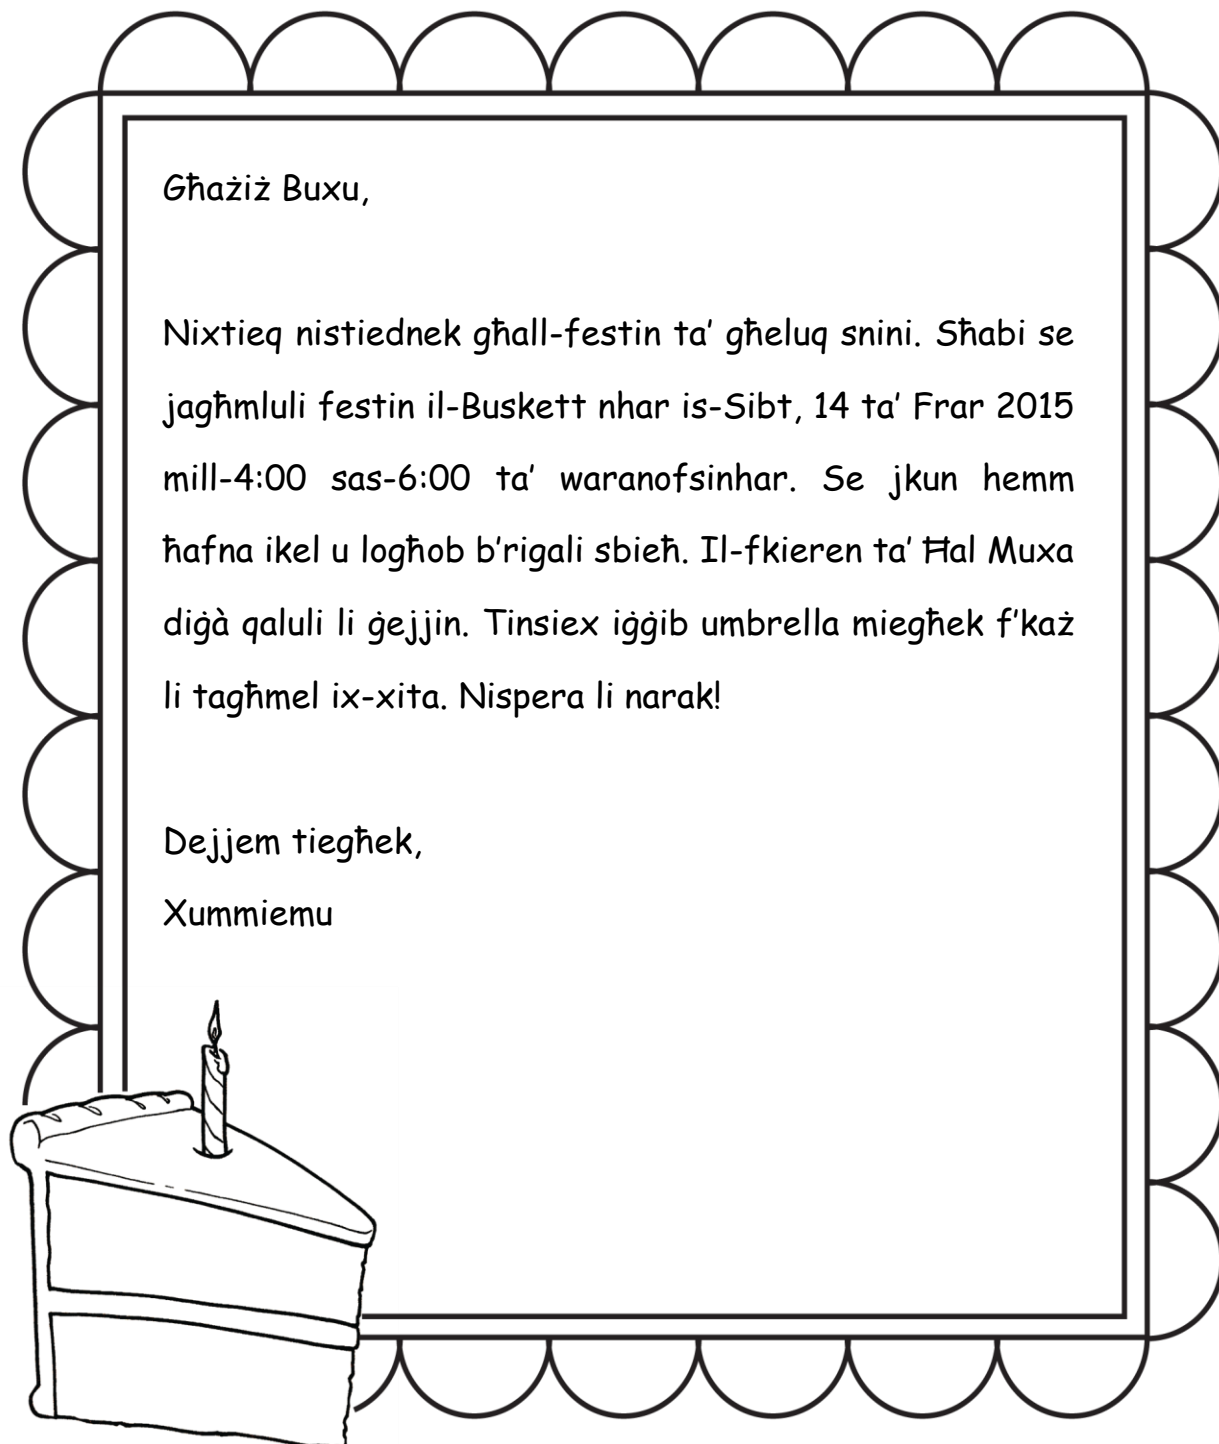 Għażiż Buxu,
Nixtieq nistiednek għall-festin ta' għeluq snini. Sħabi se
jagħmluli festin il-Buskett nhar is-Sibt, 14 ta' Frar 2015
mill-4:00 sas-6:00 ta' waranofsinhar. Se jkun hemm
ħafna ikel u logħob b'rigali sbieħ. Il-fkieren ta' Ħal Muxa
diġà qaluli li ġejjin. Tinsiex iġġib umbrella miegħek f'każ
li tagħmel ix-xita. Nispera li narak!
Dejjem tiegħek,
Xummiemu